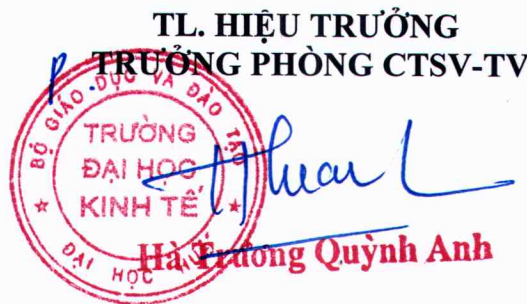 TL. HIỆU TRƯỞNG
P. TRƯỞNG PHÒNG CTSV-TV
BỘ GIÁO DỤC VÀ ĐÀO TẠO
TRƯỜNG
ĐẠI HỌC
KINH TẾ
ĐẠI HỌC HUẾ
Hà Trương Quỳnh Anh